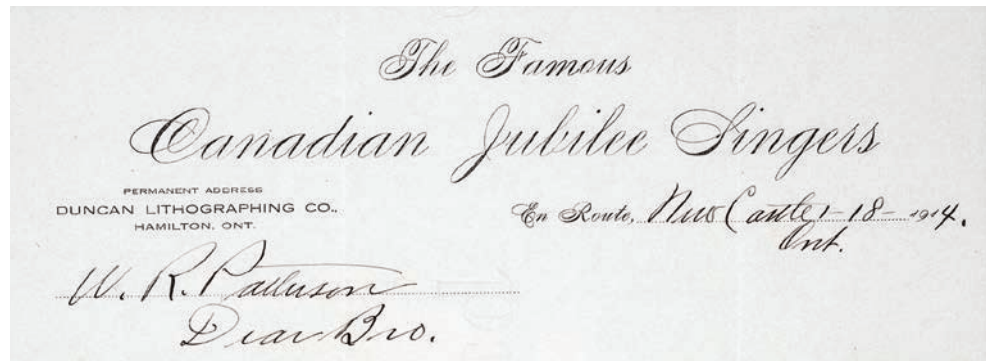 The Famous
Canadian Jubilee Singers
PERMANENT ADDRESS
DUNCAN LITHOGRAPHING CO.,
HAMILTON, ONT.
En Route, New Castle 1-18-1914.
Ont.
W. R. Patterson
Dear Bro.